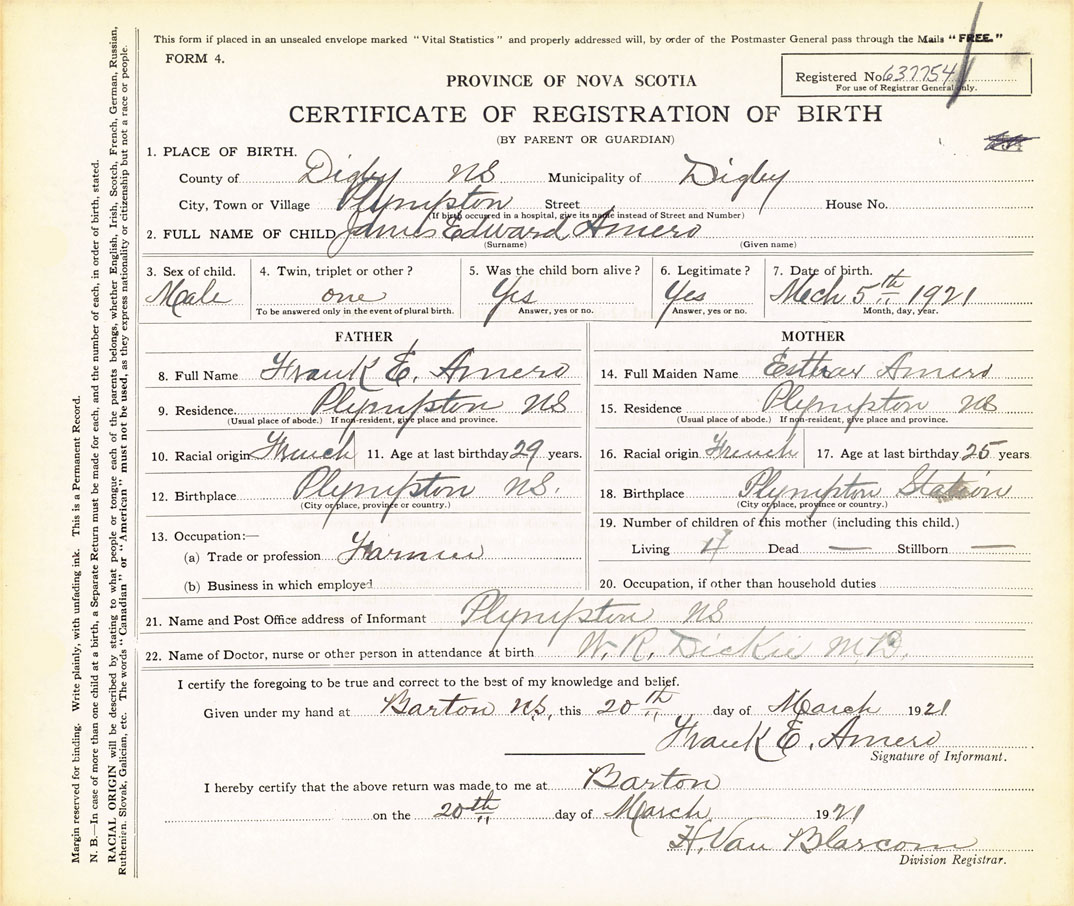 This form if placed in an unsealed envelope marked "Vital Statistics" and properly addressed will, by order of the Postmaster General pass through the Mails "FREE."
FORM 4.
Registered No. 637754
For use of Registrar General only.
PROVINCE OF NOVA SCOTIA
CERTIFICATE OF REGISTRATION OF BIRTH
(BY PARENT OR GUARDIAN)
1. PLACE OF BIRTH.
County of Digby NS Municipality of Digby
City, Town or Village Plympton Street House No.
(If birth occurred in a hospital, give its name instead of Street and Number)
2. FULL NAME OF CHILD James Edward Amero
(Surname) (Given name)
3. Sex of child. 4. Twin, triplet or other? 5. Was the child born alive? 6. Legitimate? 7. Date of birth.
Male one Yes Yes Mch 5th 1921
To be answered only in the event of plural birth. Answer, yes or no. Answer, yes or no. Month, day, year.
FATHER
8. Full Name Frank E. Amero
9. Residence. Plympton NS
(Usual place of abode.) If non-resident, give place and province.
10. Racial origin French 11. Age at last birthday 29 years.
12. Birthplace Plympton NS.
(City or place, province or country.)
13. Occupation:—
(a) Trade or profession Farmer
(b) Business in which employed
MOTHER
14. Full Maiden Name Amero
15. Residence Plympton NS
(Usual place of abode.) If non-resident, give place and province.
16. Racial origin French 17. Age at last birthday 25 years
18. Birthplace Plympton Station
(City or place, province or country.)
19. Number of children of this mother (including this child.)
Living 4 Dead — Stillborn —
20. Occupation, if other than household duties
21. Name and Post Office address of Informant Plympton NS
22. Name of Doctor, nurse or other person in attendance at birth W. R. Dickie M.D.
I certify the foregoing to be true and correct to the best of my knowledge and belief.
Given under my hand at Barton NS, this 20th day of March 1921
Frank E. Amero
Signature of Informant.
I hereby certify that the above return was made to me at Barton
on the 20th day of March 1921
H. Van Blarcom
Division Registrar.
Margin reserved for binding. Write plainly, with unfading ink. This is a Permanent Record.
N. B.—In case of more than one child at a birth, a Separate Return must be made for each, and the number of each, in order of birth, stated.
RACIAL ORIGIN will be described by stating to what people or tongue each of the parents belongs, whether English, Irish, Scotch, French, German, Russian,
Ruthenien, Slovak, Galician, etc. The words "Canadian" or "American" must not be used, as they express nationality or citizenship but not a race or people.